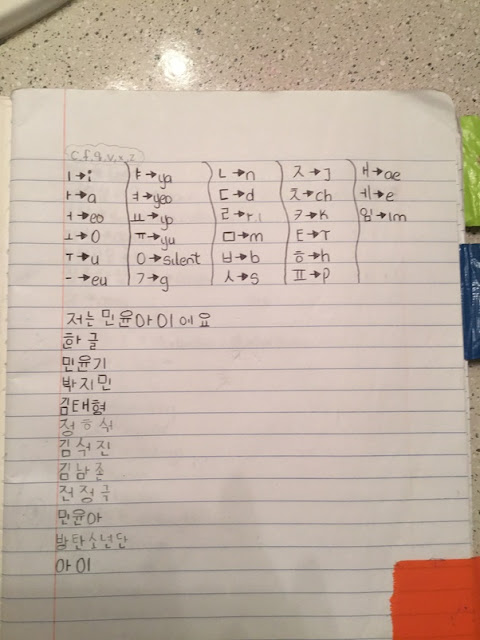 c,f,q,v,x,z
ㅣ→i ㅑ→ya ㄴ→n ㅈ→J ㅐ→ae
ㅏ→a ㅕ→yeo ㄷ→d ㅊ→ch ㅔ→e
ㅓ→eo ㅛ→yo ㄹ→r,l ㅋ→K 임→im
ㅗ→O ㅠ→yu ㅁ→m ㅌ→T
ㅜ→u ㅇ→silent ㅂ→b ㅎ→h
ㅡ→eu ㄱ→g ㅅ→s ㅍ→P
저는 민윤아이에요
한글
민윤기
박지민
김태형
정ㅎ석
김석진
김남존
전정극
민윤아
방탄소년단
아이